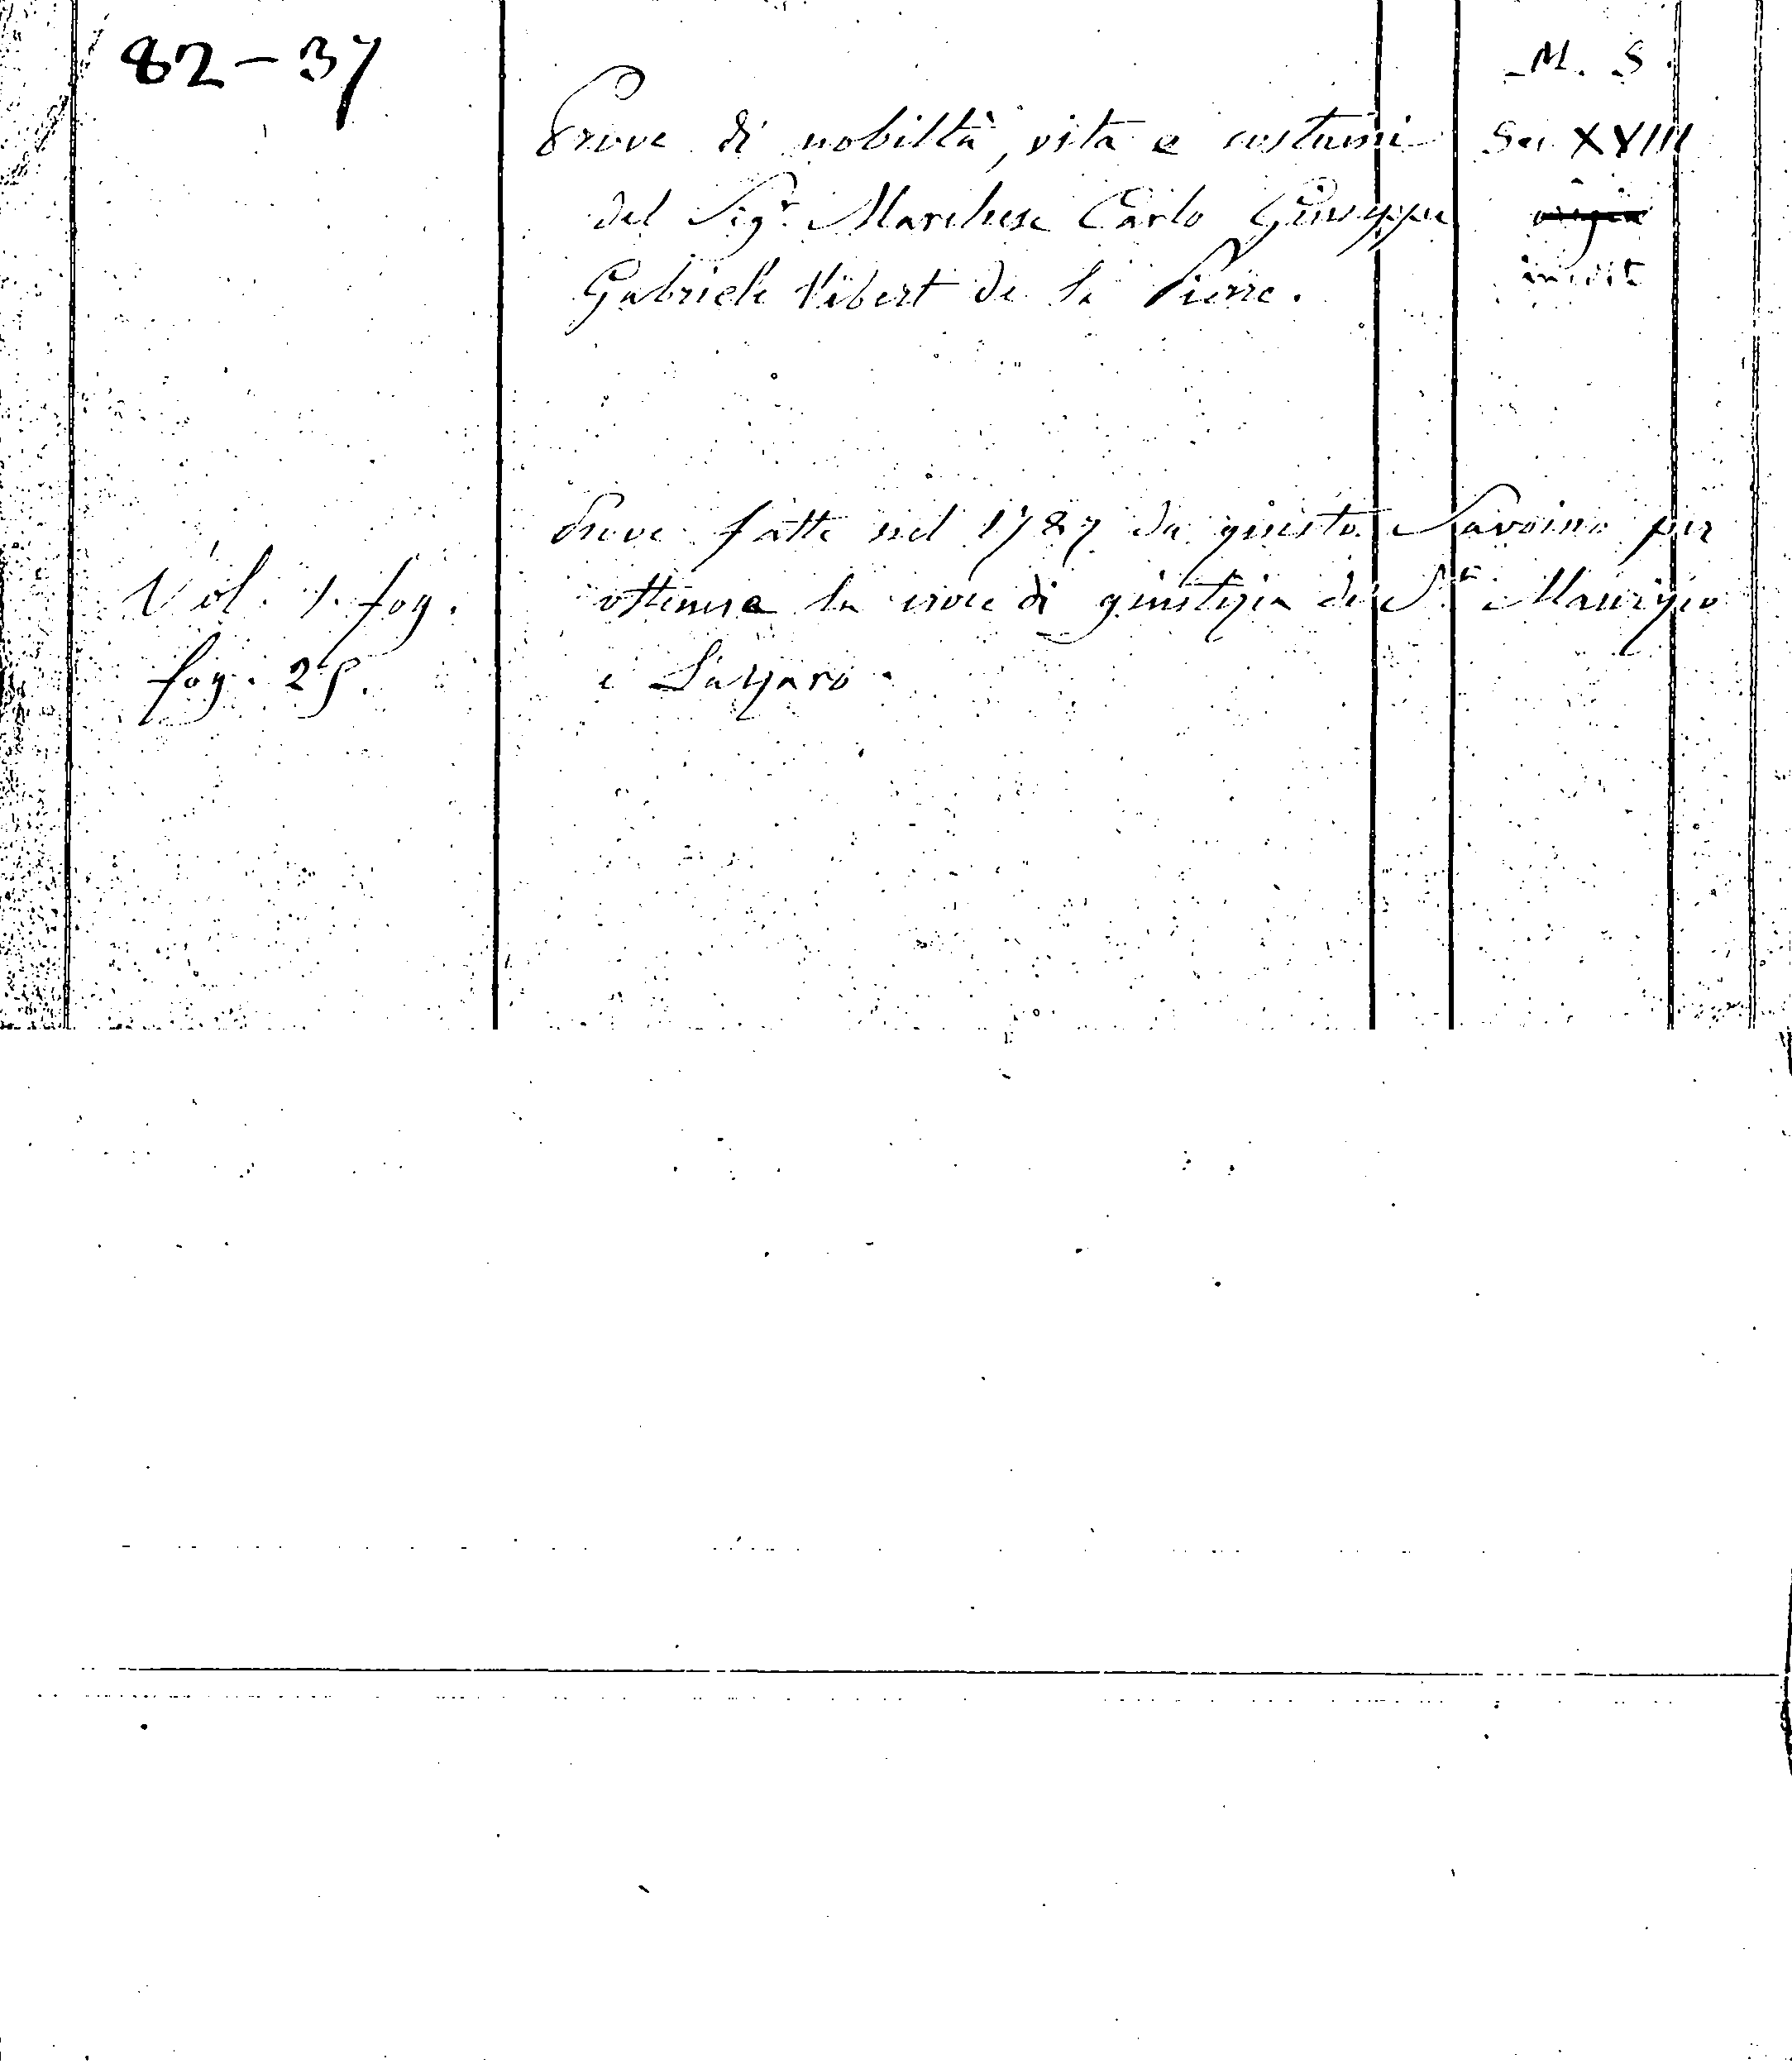 82-37
M. S.
Prove di nobiltà, vita e costumi
Sec XVIII
del Sigr. Marchese Carlo Giuseppe
origin
Gabriele Vibert de la Pierre.
inedit
Prove fatte nel 1787 da questo Savoino per
Vol. 1. fog.
ottenere la croce di giustizia dei Sti Maurizio
fog. 25.
e Lazzaro.